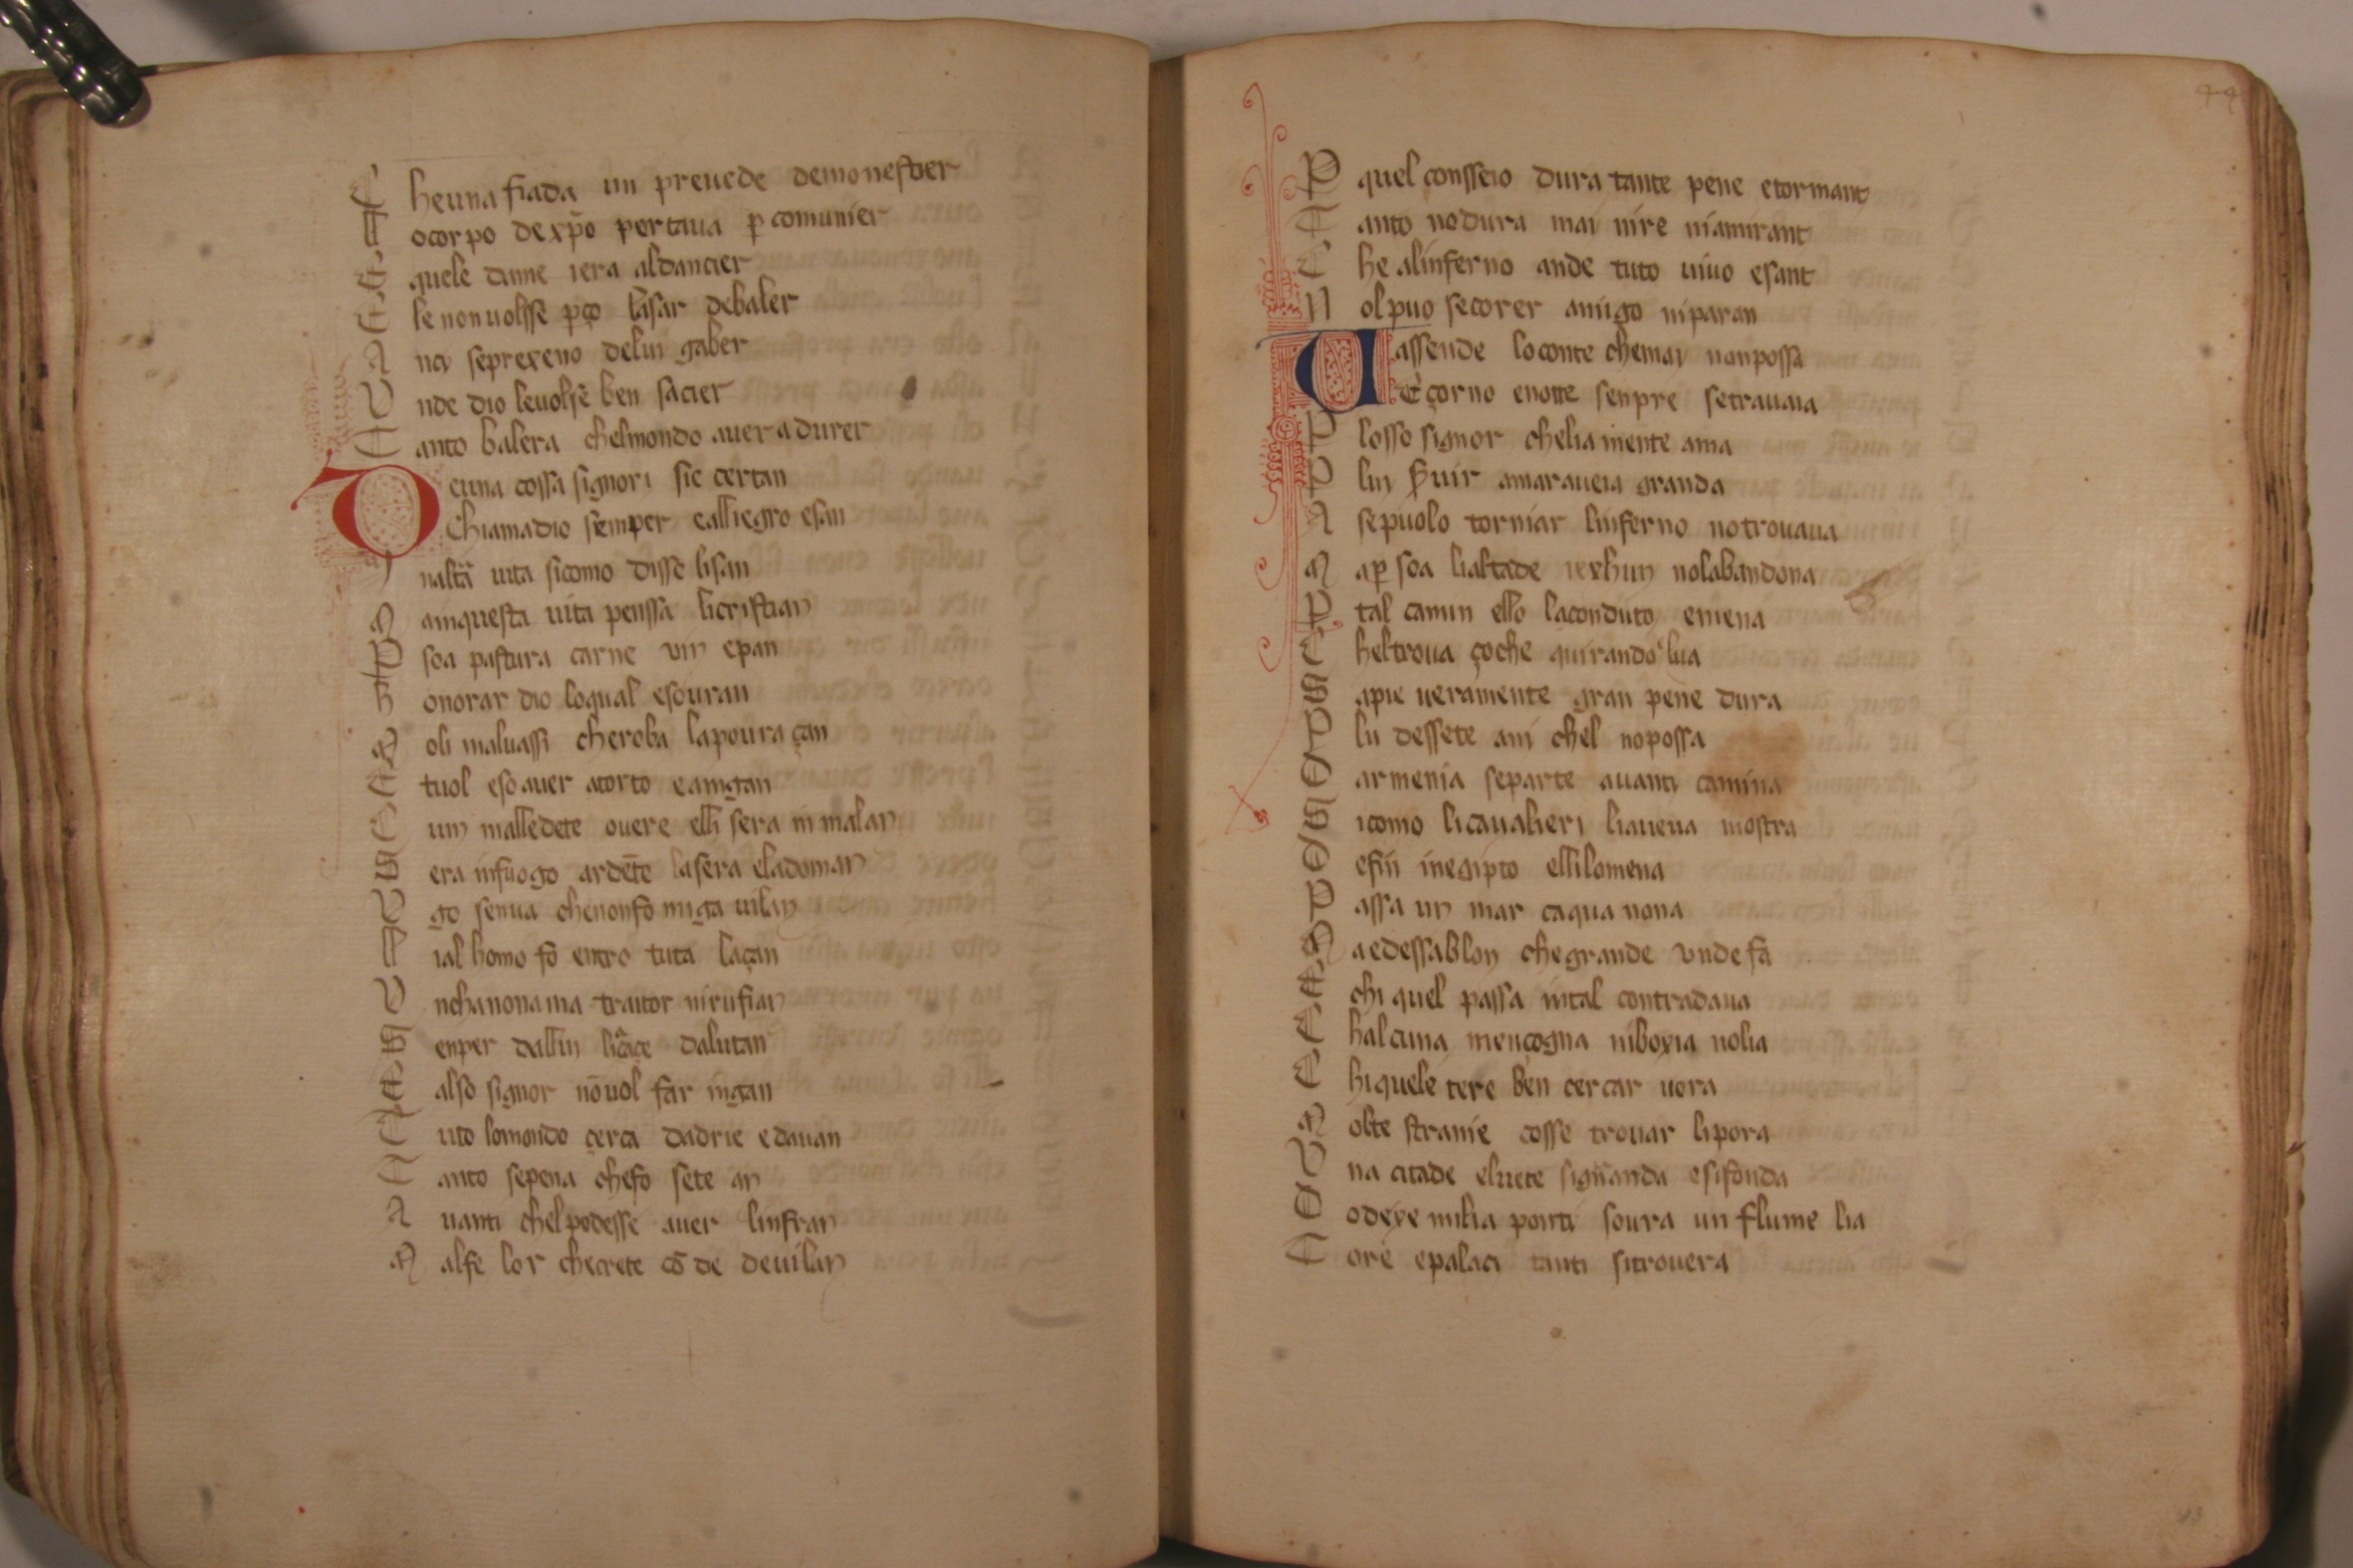 C heuna fiada un preuede demonestier
L ocorpo dexp̄o portaua ꝑ comunier
E quele dame iera aldancier
E le nonuolsse ꝑço lasar debaler
A nci seprexeno delui gaber
U nde dio leuolse ben sacier
T anto balera chelmondo auer a durer
D euna cossa signori sie certan
Chiamadio semper ealliegro esan
I naltā uita sicomo disse lisan
M ainquesta uita penssa licristian
P soa pastura carne vin epan
H onorar dio loqual esouran
M oli maluassi cheroba lapoura çan
E tuol eso auer atorto eamgan
C um malledete ouere elli sera in malan
S era infuogo ardēte lasera eladoman
U go senua chenonfo miga uilan
L ial homo fo entro tuta laçan
U nchanonama traitor nirufian
S enper dallui licāçe dalutan
E also signor nōuol far ingan
T uto lomondo çerca dadrie edauan
T anto sepena chefo sete an
A uanti chelpodesse auer linfran
M alfe lor checrete cō de deuilan
44
P quel consseio dura tante pene etormant
T anto nodura mai nire niamirant
C he alinferno ande tuto uiuo esant
N olpuo secorer amigo niparan
U assende loconte chemai nonpossa
E çorno enotte senpre setrauaia
P losso signor chelia mente ama
P lui ẜuir amaraueia granda
A sepuolo torniar linferno notrouaua
M aꝑ soa lialtade iexhun nolabandona
P tal camin ello laconduto emena
C heltroua çoche quirando lua
S apie ueramente gran pene dura
P lu dessete ani chel nopossa
D armenia separte auanti camina
S icomo licaualieri liaueua mostra
D efin inegipto ellilomena
P assa un mar caqua nona
M aedessablon chegrande unde fa
E chi quel passa intal contradaua
C halcuna mençogna niboxia nolia
C hiquele tere ben cercar uora
M olte stranie cosse trouar lipora
U na citade eluete signanda esifonda
D odexe milia ponti soura un flume lia
T ore epalaci tanti sitrouera